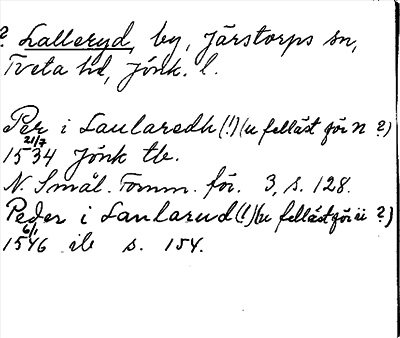 ? Lalleryd, by, Järstorps sn,
Tveta hd, Jönk. l.
Per i Laularedh (!) (u felläst för n ?)
21/7
1534 Jönk tb.
N. Smål. Fornm. för. 3, s. 128.
Peder i Laularud (!) (u felläst för ü ?)
6/1
1546 ib s. 154.